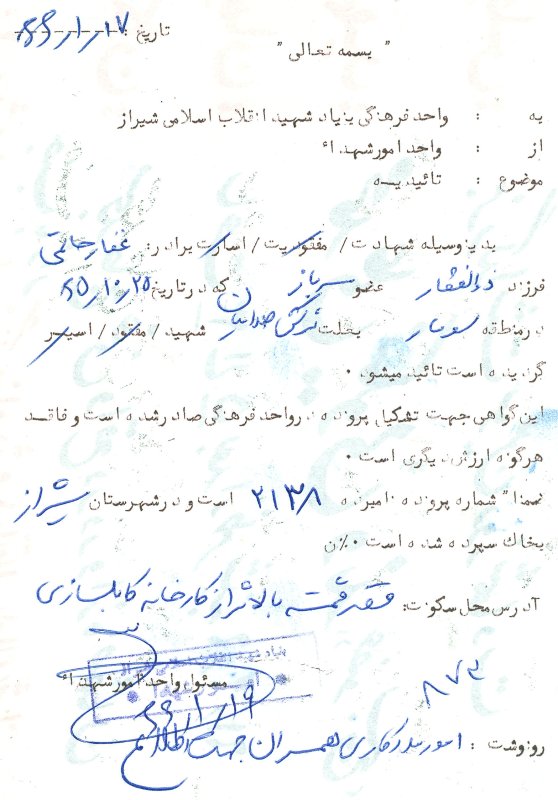 تاریخ : ۶۶/۱/۱۷
" بسمه تعالی "
به : واحد فرهنگی بنیاد شهید انقلاب اسلامی شیراز
از : واحد امور شهداء
موضوع : تائیدیه
بدینوسیله شهادت / مفقودیت / اسارت برادر : غفار حاتمی
فرزند ذوالفقار عضو سرباز که در تاریخ ۶۵/۱۰/۲۵
در منطقه سومار بعلت ترکش صدامیان شهید / مفقود / اسیر
گردیده است تائید میشود .
این گواهی جهت تشکیل پرونده در واحد فرهنگی صادر شده است و فاقد
هرگونه ارزش دیگری است .
ضمنا" شماره پرونده نامبرده ۲۱۳۸ است و در شهرستان شیراز
بخاک سپرده شده است .
آدرس محل سکونت : بالاتر از کارخانه کابلسازی
مسئول واحد امور شهداء
۶۶/۱/۱۹
۸۷۳
رونوشت : امور مددکاری همسران جهت اطلاع